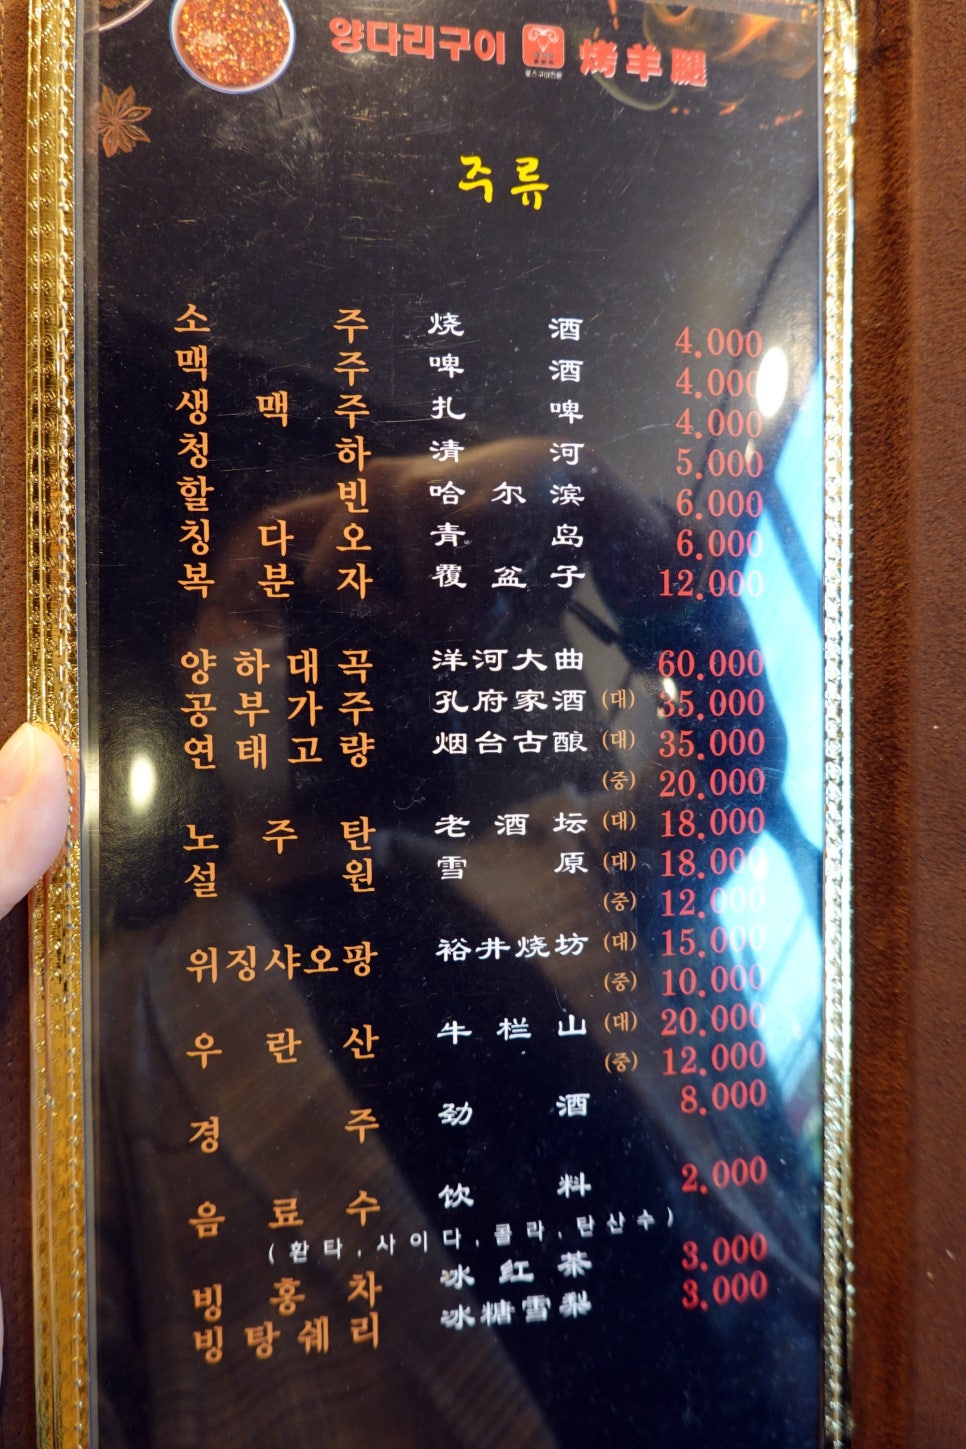 양다리구이 烤羊腿
주류
소주 烧酒 4.000
맥주 啤酒 4.000
생맥주 扎啤 4.000
청하 清河 5.000
할빈 哈尔滨 6.000
칭다오 青岛 6.000
복분자 覆盆子 12.000
양하대곡 洋河大曲 60.000
공부가주 孔府家酒 (대) 35.000
연태고량 烟台古酿 (대) 35.000
(중) 20.000
노주탄 老酒坛 (대) 18.000
설원 雪原 (대) 18.000
(중) 12.000
위징샤오팡 裕井烧坊 (대) 15.000
(중) 10.000
우란산 牛栏山 (대) 20.000
(중) 12.000
경주 劲酒 8.000
음료수 饮料 2.000
(환타,사이다,콜라,탄산수)
빙홍차 冰红茶 3.000
빙탕쉐리 冰糖雪梨 3.000